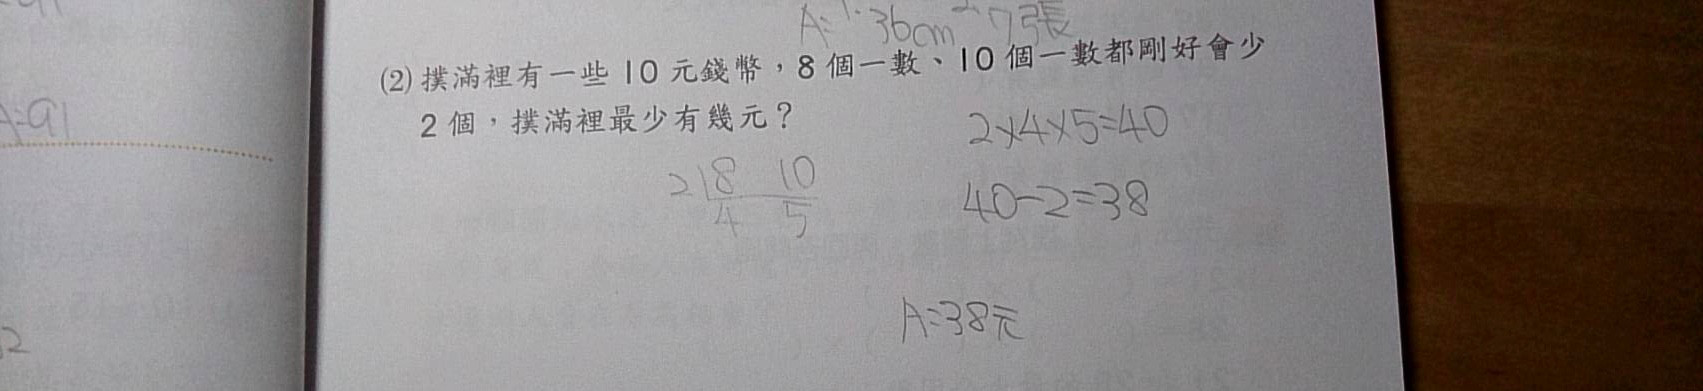 A=91
A=1.36cm² 7張
(2) 撲滿裡有一些10元錢幣，8個一數、10個一數都剛好會少
2個，撲滿裡最少有幾元？
2×4×5=40
2 8 10
4 5
40-2=38
A=38元